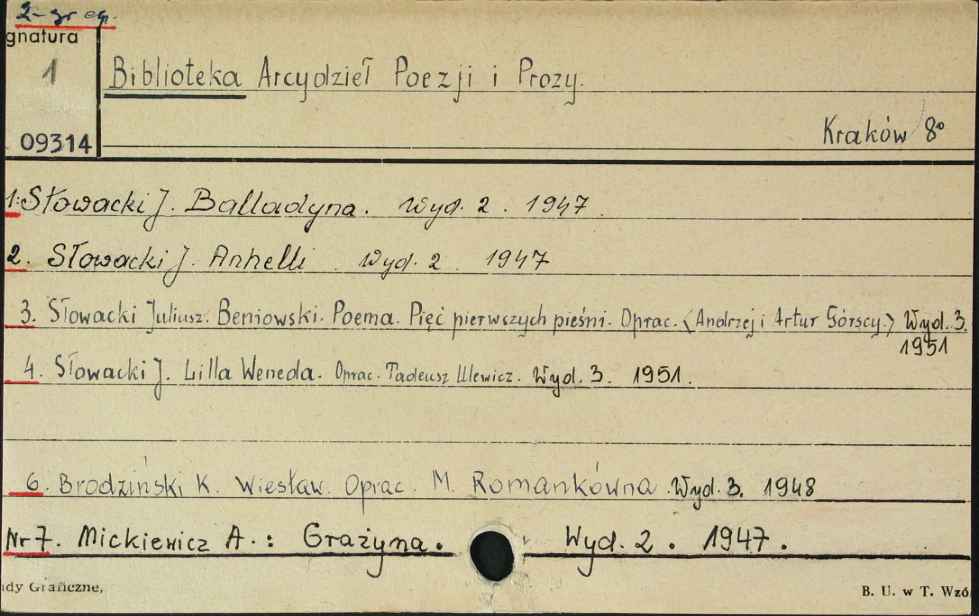 2-gr eg.
gnatura
1
Biblioteka Arcydzieł Poezji i Prozy.
Kraków 8°
09314
1. Słowacki J. Balladyna. Wyd. 2. 1947.
2. Słowacki J. Anhelli. Wyd. 2. 1947
3. Słowacki Juliusz. Beniowski. Poema. Pięć pierwszych pieśni. Oprac. <Andrzej i Artur Górscy.> Wyd. 3.
1951
4. Słowacki J. Lilla Weneda. Oprac. Tadeusz Ulewicz. Wyd. 3. 1951.
6. Brodziński K. Wiesław. Oprac. M. Romankówna. Wyd. 3. 1948
Nr 7. Mickiewicz A.: Grażyna. Wyd. 2. 1947.
dy Graficzne,
B. U. w T. Wzó